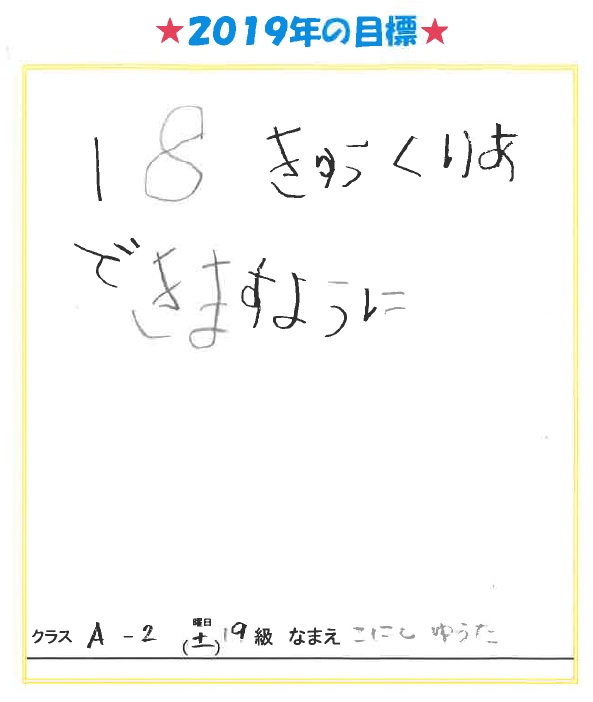 ★2019年の目標★
18 きゅうくりあ
できますように
クラス A-2 曜日(土) 19級 なまえ こにし ゆうた